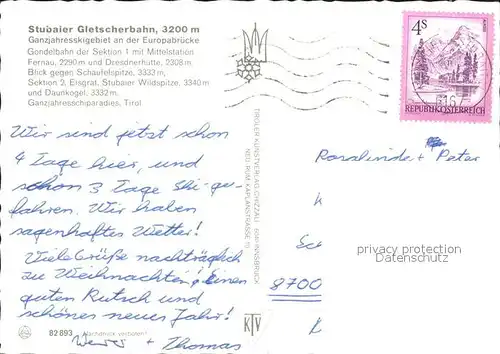 Stubaier Gletscherbahn, 3200 m
Ganzjahresskigebiet an der Europabrücke
Gondelbahn der Sektion 1 mit Mittelstation
Fernau, 2290 m und Dresdnerhütte, 2308 m.
Blick gegen Schaufelspitze, 3333 m,
Sektion 2, Eisgrat, Stubaier Wildspitze, 3340 m
und Daunkogel, 3332 m.
Ganzjahresschiparadies, Tirol
4S
REPUBLIK ÖSTERREICH
Wir sind jetzt schon
4 Tage hier, und
schon 3 Tage Ski-ge-
fahren. Wir haben
sagenhaftes Wetter!
Viele Grüße nachträglich
zu Weihnachten! Einen
guten Rutsch und
schönes neues Jahr!
+ Thomas
82893 Nachdruck verboten!
TIROLER KUNSTVERLAG CHIZZALI INNSBRUCK
NEU RUM KAPLANSTRASSE
KTV
Rosalinde + Peter
K
privacy protection
Datenschutz
8700